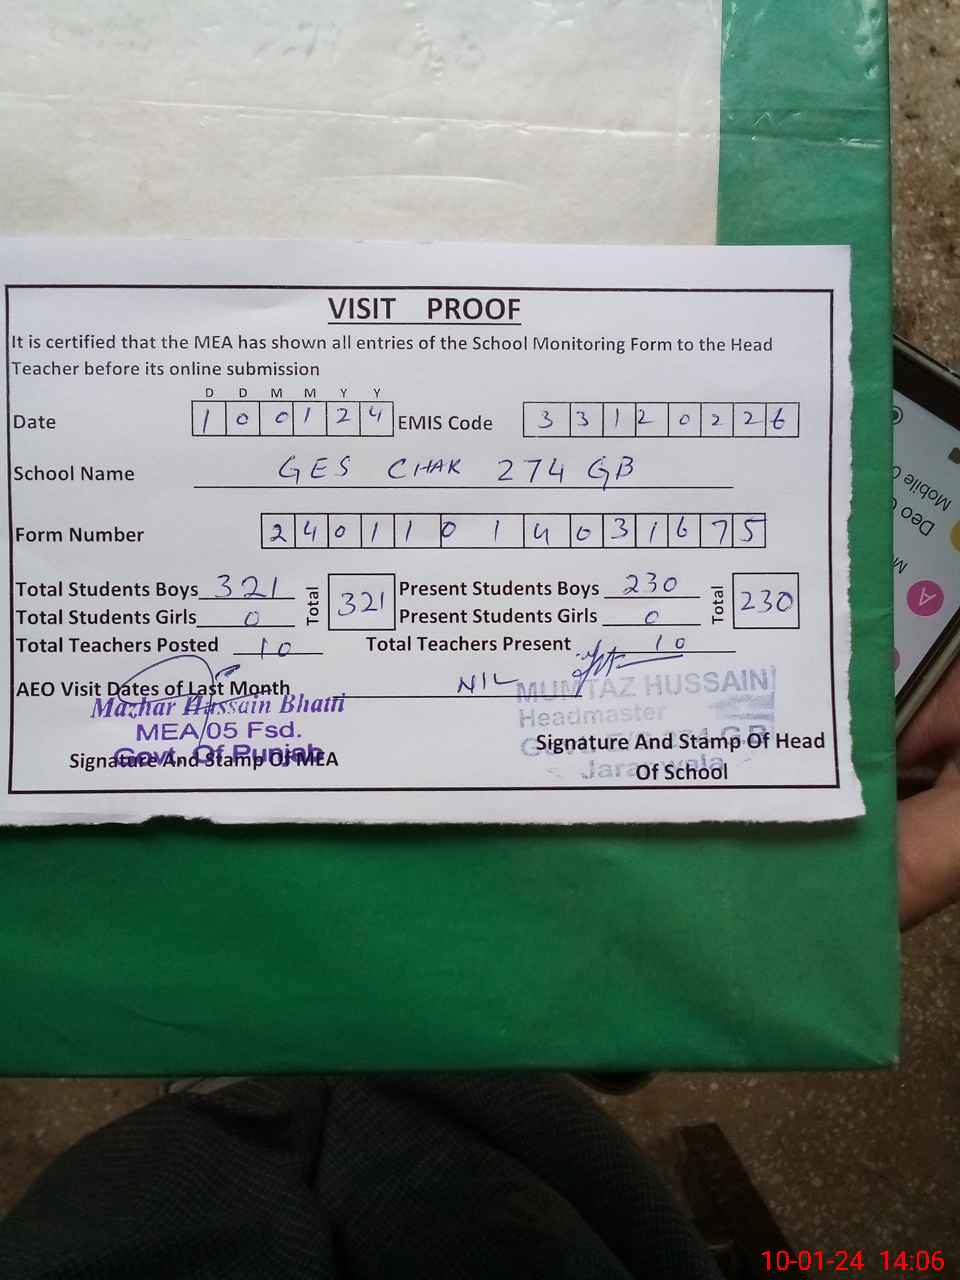 VISIT PROOF
It is certified that the MEA has shown all entries of the School Monitoring Form to the Head
Teacher before its online submission
D D M M Y Y
Date 1 0 0 1 2 4 EMIS Code 3 3 1 2 0 2 2 6
School Name GES CHAK 274 GB
Form Number 2 4 0 1 1 0 1 4 0 3 1 6 7 5
Total Students Boys 321 Total 321 Present Students Boys 230 Total 230
Total Students Girls 0 Present Students Girls 0
Total Teachers Posted 10 Total Teachers Present 10
AEO Visit Dates of Last Month NIL
Mazhar Hussain Bhatti
MEA/05 Fsd.
Govt. Of Punjab
Signature And Stamp Of MEA
MUMTAZ HUSSAIN
Headmaster
274 GB
Jaranwala
Signature And Stamp Of Head
Of School
Mobile
Deo
A
10-01-24 14:06